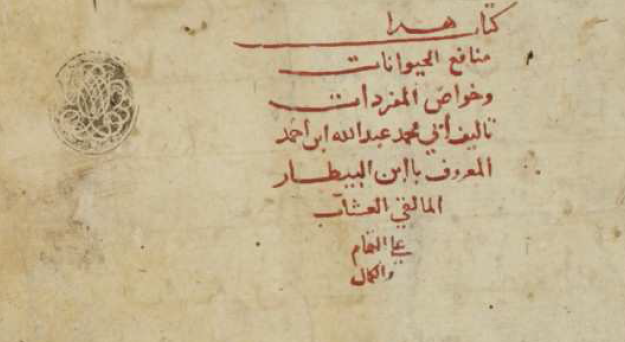 كتاب هدا
منافع الحيوانات
وخواص المفردات
تاليف أبي محمد عبد الله ابن احمد
المعروف باابن البيطار
المالقي العشاب
على التمام
والكمال